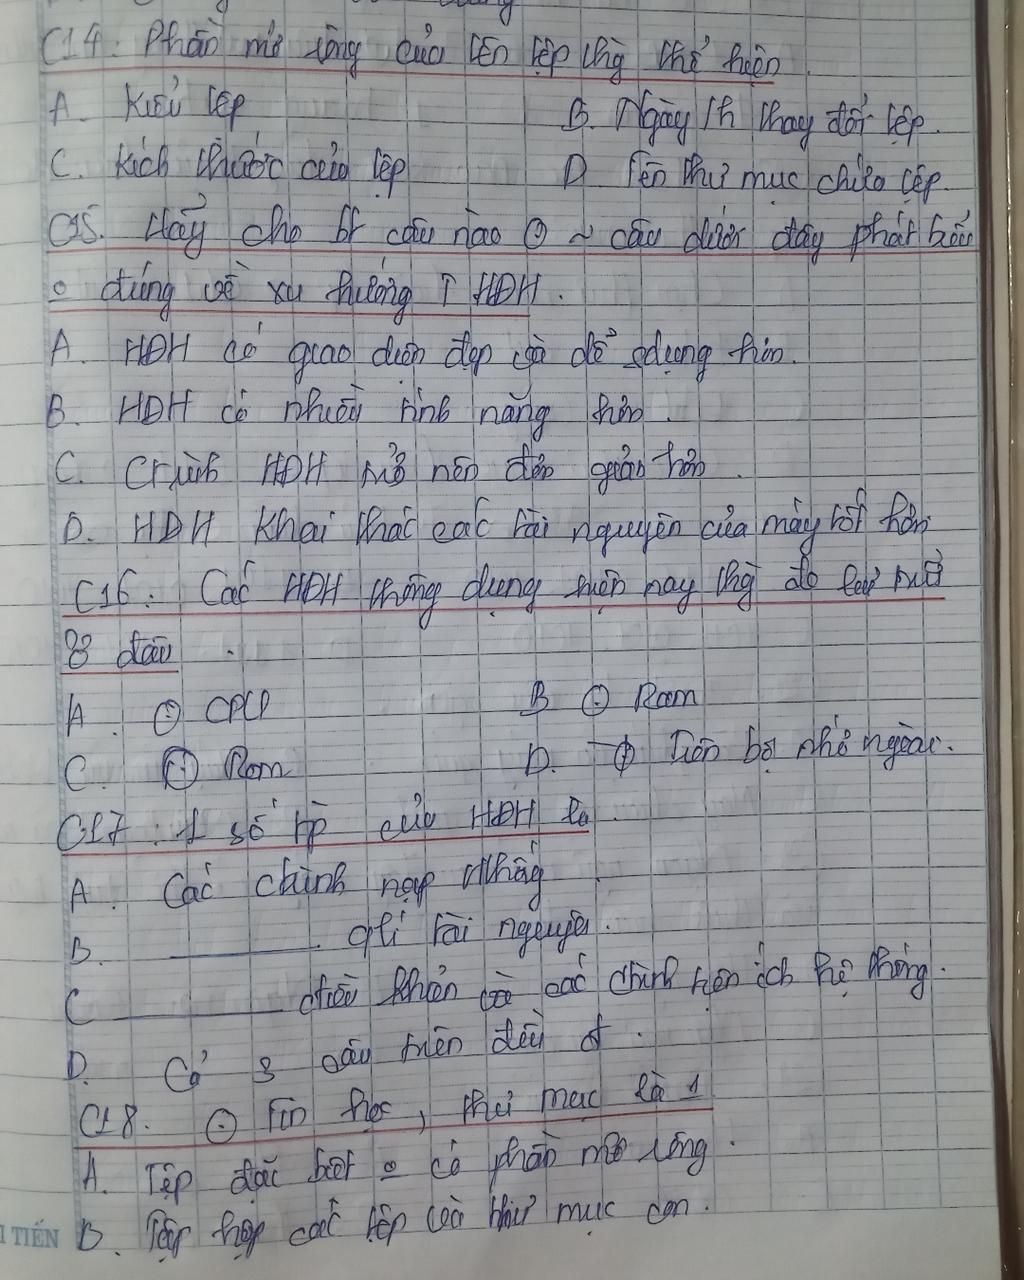 C14: Phần mở rộng của tên tệp thg thể hiện
A. Kiểu tệp B. Ngày th thay đổi tệp.
C. Kích thước của tệp D Tên thư mục chứa tệp.
C15. Hãy cho bt câu nào ⊙ ~ câu dưới đây phát biểu
o đúng về xu hướng ↑ HĐH.
A. HĐH có giao diện đẹp và dễ sdụng hơn.
B. HĐH có nhiều tính năng hơn.
C. Ctrình HĐH trở nên đơn giản hơn.
D. HĐH khai thác các tài nguyên của máy tốt hơn
C16: Các HĐH thông dụng hiện nay thg đc lưu trữ
ở đâu
A. ⊙ CPU B ⊙ Ram
C. ⊙ Rom D. Trên bộ nhớ ngoài.
C17: 1 số tp của HĐH là
A. Các chình nạp
B. qlí tài nguyên.
C điều khiển và các chình tiện ích hệ thống.
D. Cả 3 câu trên đều đ.
C18. ⊙ Tin học, thư mục là 1
A. Tệp đặc biệt o có phần mở rộng.
I TIẾN B. Tập hợp các tệp và thư mục con.